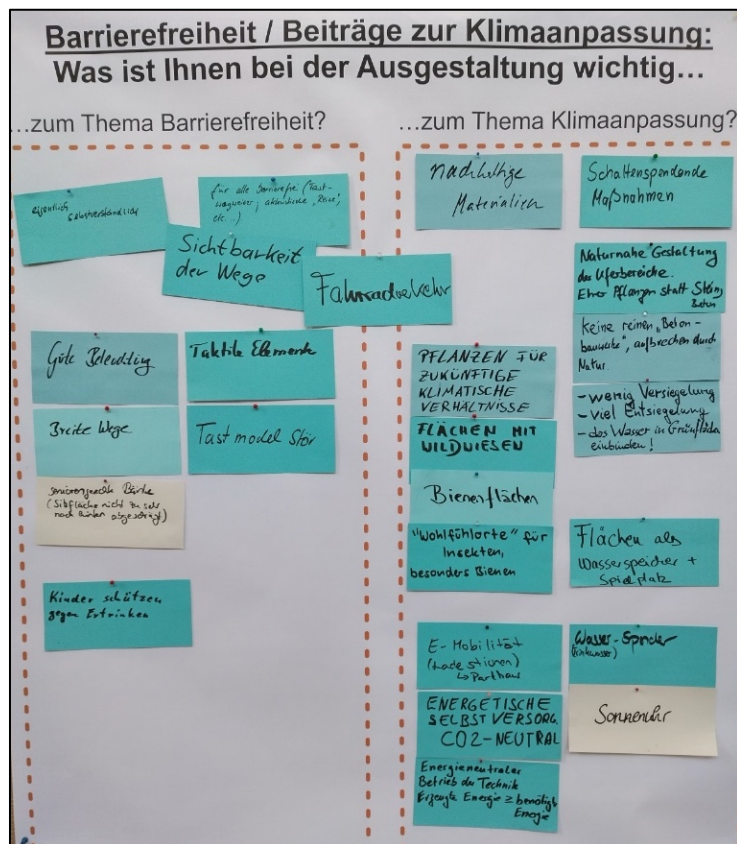 Barrierefreiheit / Beiträge zur Klimaanpassung:
Was ist Ihnen bei der Ausgestaltung wichtig…
…zum Thema Barrierefreiheit?
eigentlich
selbstverständlich
für alle Barrierefrei (Tast-
wegweiser, akustische
etc...)
Sichtbarkeit
der Wege
Fahrradverkehr
Gute Beleuchtung
Taktile Elemente
Breite Wege
Tastmodel Stör
seniorengerechte Bänke
(Sitzfläche nicht zu sehr
nach hinten abgeschrägt)
Kinder schützen
gegen Ertrinken
…zum Thema Klimaanpassung?
nachhaltige
Materialien
Schattenspendende
Maßnahmen
Naturnahe Gestaltung
der Uferbereiche.
Eher Pflanzen statt Stein,
Beton
keine reinen „Beton-
bauwerke", aufbrechen durch
Natur.
PFLANZEN FÜR
ZUKÜNFTIGE
KLIMATISCHE
VERHÄLTNISSE
- wenig Versiegelung
- viel Entsiegelung
- das Wasser in Grünflächen
einbinden!
FLÄCHEN MIT
WILDWIESEN
Bienenflächen
"Wohlfühlorte" für
Insekten,
besonders Bienen
Flächen als
Wasserspeicher +
Spielplatz
E-Mobilität
(Ladestationen)
↳ Parkhaus
Wasser-Spender
(Trinkwasser)
ENERGETISCHE
SELBSTVERSORG.
CO2-NEUTRAL
Sonnenuhr
Energieneutraler
Betrieb der Technik
Erzeugte Energie ≥ benötigte
Energie